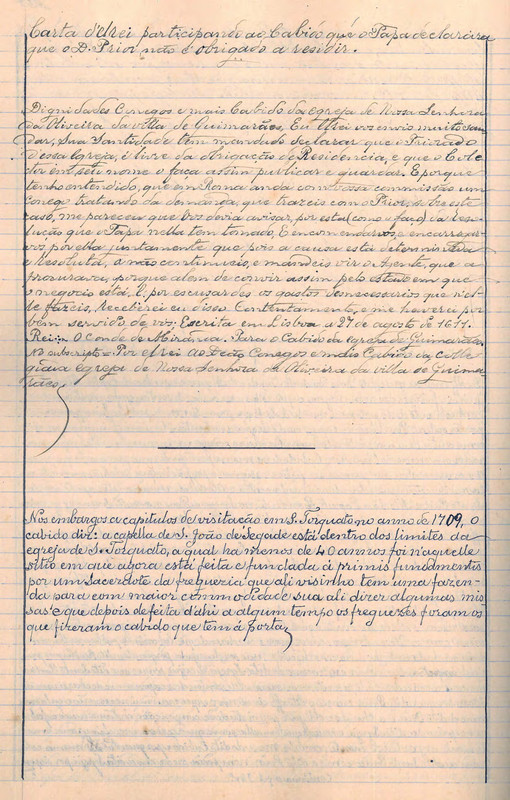 Carta d'El rei participando ao Cabido que o Papa declarára
que o D. Prior não é obrigado a residir.
Dignidades Conegos e mais Cabido da egreja de Nossa Senhora
da Oliveira da villa de Guimarães, Eu El rei vos envio muito sau
dar, Sua Santidade tem mandado declarar que o Priorado
Dessa Igreja, é livre da obrigação de Residencia, e que o Colle
tor em seu nome o faça assim publicar e guardar. E porque
tenho entendido, que em Roma anda com vossa commissão um
conego tratando da demanda, que trazeis com o Prior sobre este
caso, me pareceu que vos devia avisar, por esta (como o faço) da Reso-
lução que o Papa nella tem tomado, E encomendarvos e encarregar
vos por ella juntamente que pois a causa está determinada
e Resoluta, a não continueis, e mandeis vir o Agente, que a
procurava, porque alem de convir assim pelo estado em que
o negocio está, é, por escusardes os gastos desnecessarios que
fazeis, Receberei eu disso Contentamento, e me haverei por
bem servido de vós; Escrita em Lisboa a 27 de agosto de 1611.
Rei:- O Conde de Miranda, Para o Cabido da egreja de Guimarães.
No subscripto = Por El rei ao Conegos e mais Cabido da colle
giada egreja de Nossa Senhora da Oliveira da villa de Guima
rães.
Nos embargos a capitulos de visitação em S. Torquato no anno de 1709, o
cabido diz: a capella de S. João de Segade está dentro dos limites da
egreja de S. Torquato, a qual ha menos de 40 annos foi n'aquelle
sitio em que agora está feita e fundada á primis fundamentis
por um Sacerdote da freguezia que ali visinho tem uma fazen-
da para com maior commodidade sua ali dizer algumas mis
sas e que depois de feita d'ahi a algum tempo os freguezes foram os
que fizeram o cabido que tem á porta